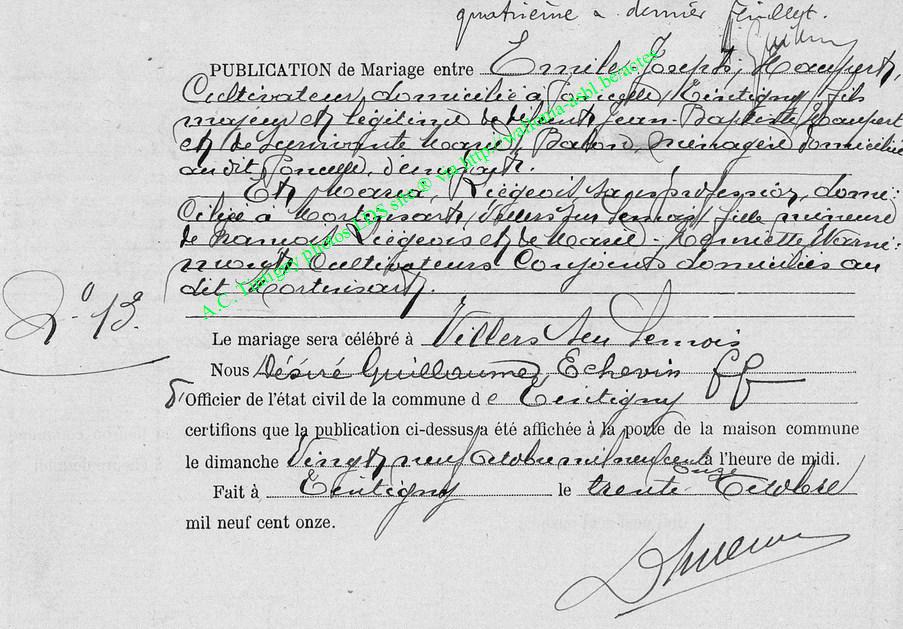 quatrième & dernier feuillet.
PUBLICATION de Mariage entre Emile, Joseph, Haupert,
Cultivateur, domicilié à Poncelle, (Tintigny) fils
majeur et légitime de défunt Jean-Baptiste Haupert
et de survivante Marie, Baton, ménagère domiciliée
au dit Poncelle, d'une part.
Et Maria, Liégeois, sans profession, domi-
ciliée à Mortinsart, (Villers sur Semois) fille mineure
de Liégeois et de Marie-Henriette
Cultivateurs Conjoints domiciliés au
dit Mortinsart.
N° 13.
Le mariage sera célébré à Villers sur Semois
Nous Désiré Guillaume, Echevin ff
Officier de l'état civil de la commune de Tintigny
certifions que la publication ci-dessus a été affichée à la porte de la maison commune
le dimanche Vingt neuf octobre mil neuf cent onze à l'heure de midi.
Fait à Tintigny le trente Octobre
mil neuf cent onze.
A.C. Tintigny photos LDS site ® via http://wallonia-asbl.be/actes